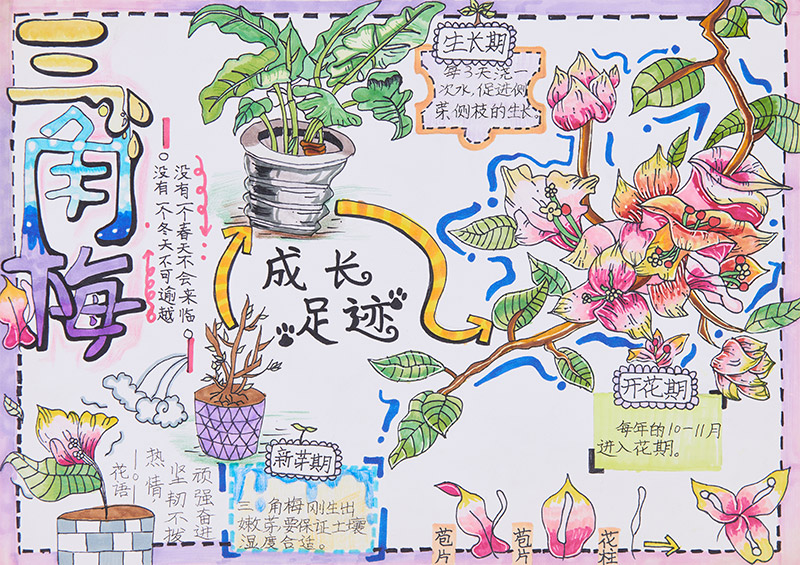 三角梅
没有一个冬天不可逾越
没有一个春天不会来临
生长期
每3天浇一
次水,促进侧
芽,侧枝的生长。
成长
足迹
开花期
每年的10-11月
进入花期。
新芽期
三角梅刚生出
嫩芽要保证土壤
湿度合适。
花语
热情
坚韧不拔
顽强奋进
苞片
苞片
花柱